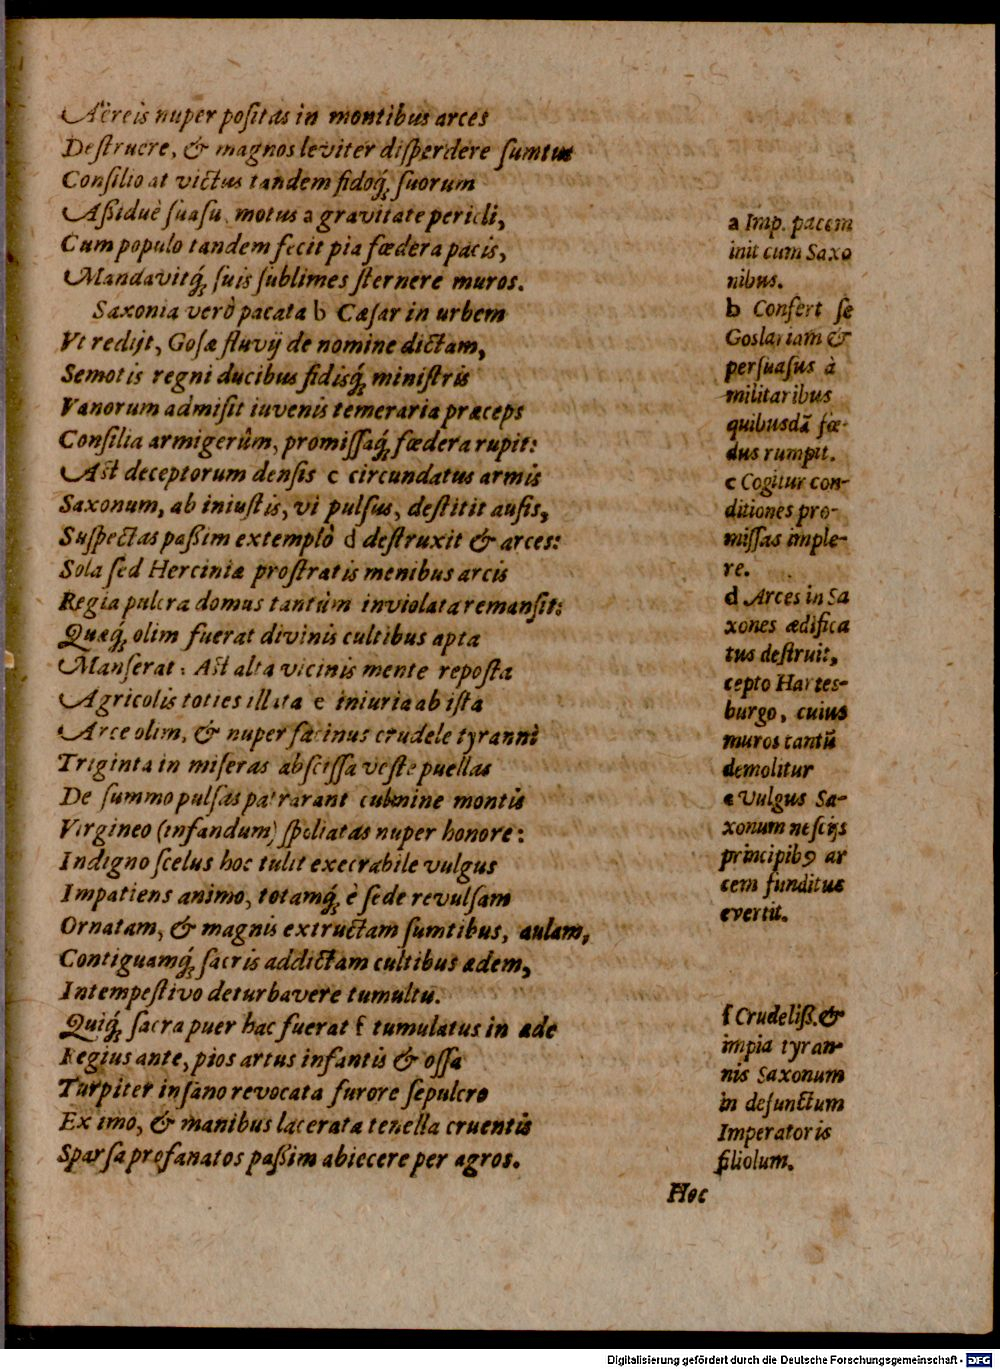 Aëreis nuper positas in montibus arces
Destruere, & magnos leviter disperdere sumtus
Consilio at victus tandem fidoq́; suorum
Aßiduè suasu, motus a gravitate pericli,
Cum populo tandem fecit pia fœdera pacis,
Mandavitq́; suis sublimes sternere muros.
Saxonia verò pacata b Cæsar in urbem
Vt redijt, Gosæ fluvij de nomine dictam,
Semotis regni ducibus fidisq́; ministris
Vanorum admisit iuvenis temeraria præceps
Consilia armigerûm, promissaq́; fœdera rupit:
Ast deceptorum densis c circundatus armis
Saxonum, ab iniustis, vi pulsus, destitit ausis,
Suspectas paßim extemplò d destruxit & arces:
Sola sed Herciniæ prostratis menibus arcis
Regia pulcra domus tantùm inviolata remansit:
Quæq́; olim fuerat divinis cultibus apta
Manserat: Ast alta vicinis mente reposta
Agricolis toties illata e iniuria ab ista
Arce olim, & nuper facinus crudele tyranni
Triginta in miseras abscissa veste puellas
De summo pulsas patrarant culmine montis
Virgineo (infandum) spoliatas nuper honore:
Indigno scelus hoc tulit execrabile vulgus
Impatiens animo, totamq́; è sede revulsam
Ornatam, & magnis extructam sumtibus, aulam,
Contiguamq́; sacris addictam cultibus ædem,
Intempestivo deturbavere tumultu.
Quiq́; sacra puer hac fuerat f tumulatus in æde
Regius ante, pios artus infantis & ossa
Turpiter insano revocata furore sepulcro
Ex imo, & manibus lacerata tenella cruentis
Sparsa profanatos paßim abiecere per agros.
a Imp. pacem
init cum Saxo
nibus.
b Confert se
Goslariam &
persuasus à
militaribus
quibusdā fœ-
dus rumpit.
c Cogitur con-
ditiones pro-
missas imple-
re.
d Arces in Sa
xones ædifica
tus destruit,
cepto Hartes-
burgo, cuius
muros tantū
demolitur
e Vulgus Sa-
xonum nescijs
principibꝰ ar
cem funditus
evertit.
f Crudeliß. &
impia tyran-
nis Saxonum
in defunctum
Imperatoris
filiolum.
Hoc
Digitalisierung gefördert durch die Deutsche Forschungsgemeinschaft - DFG